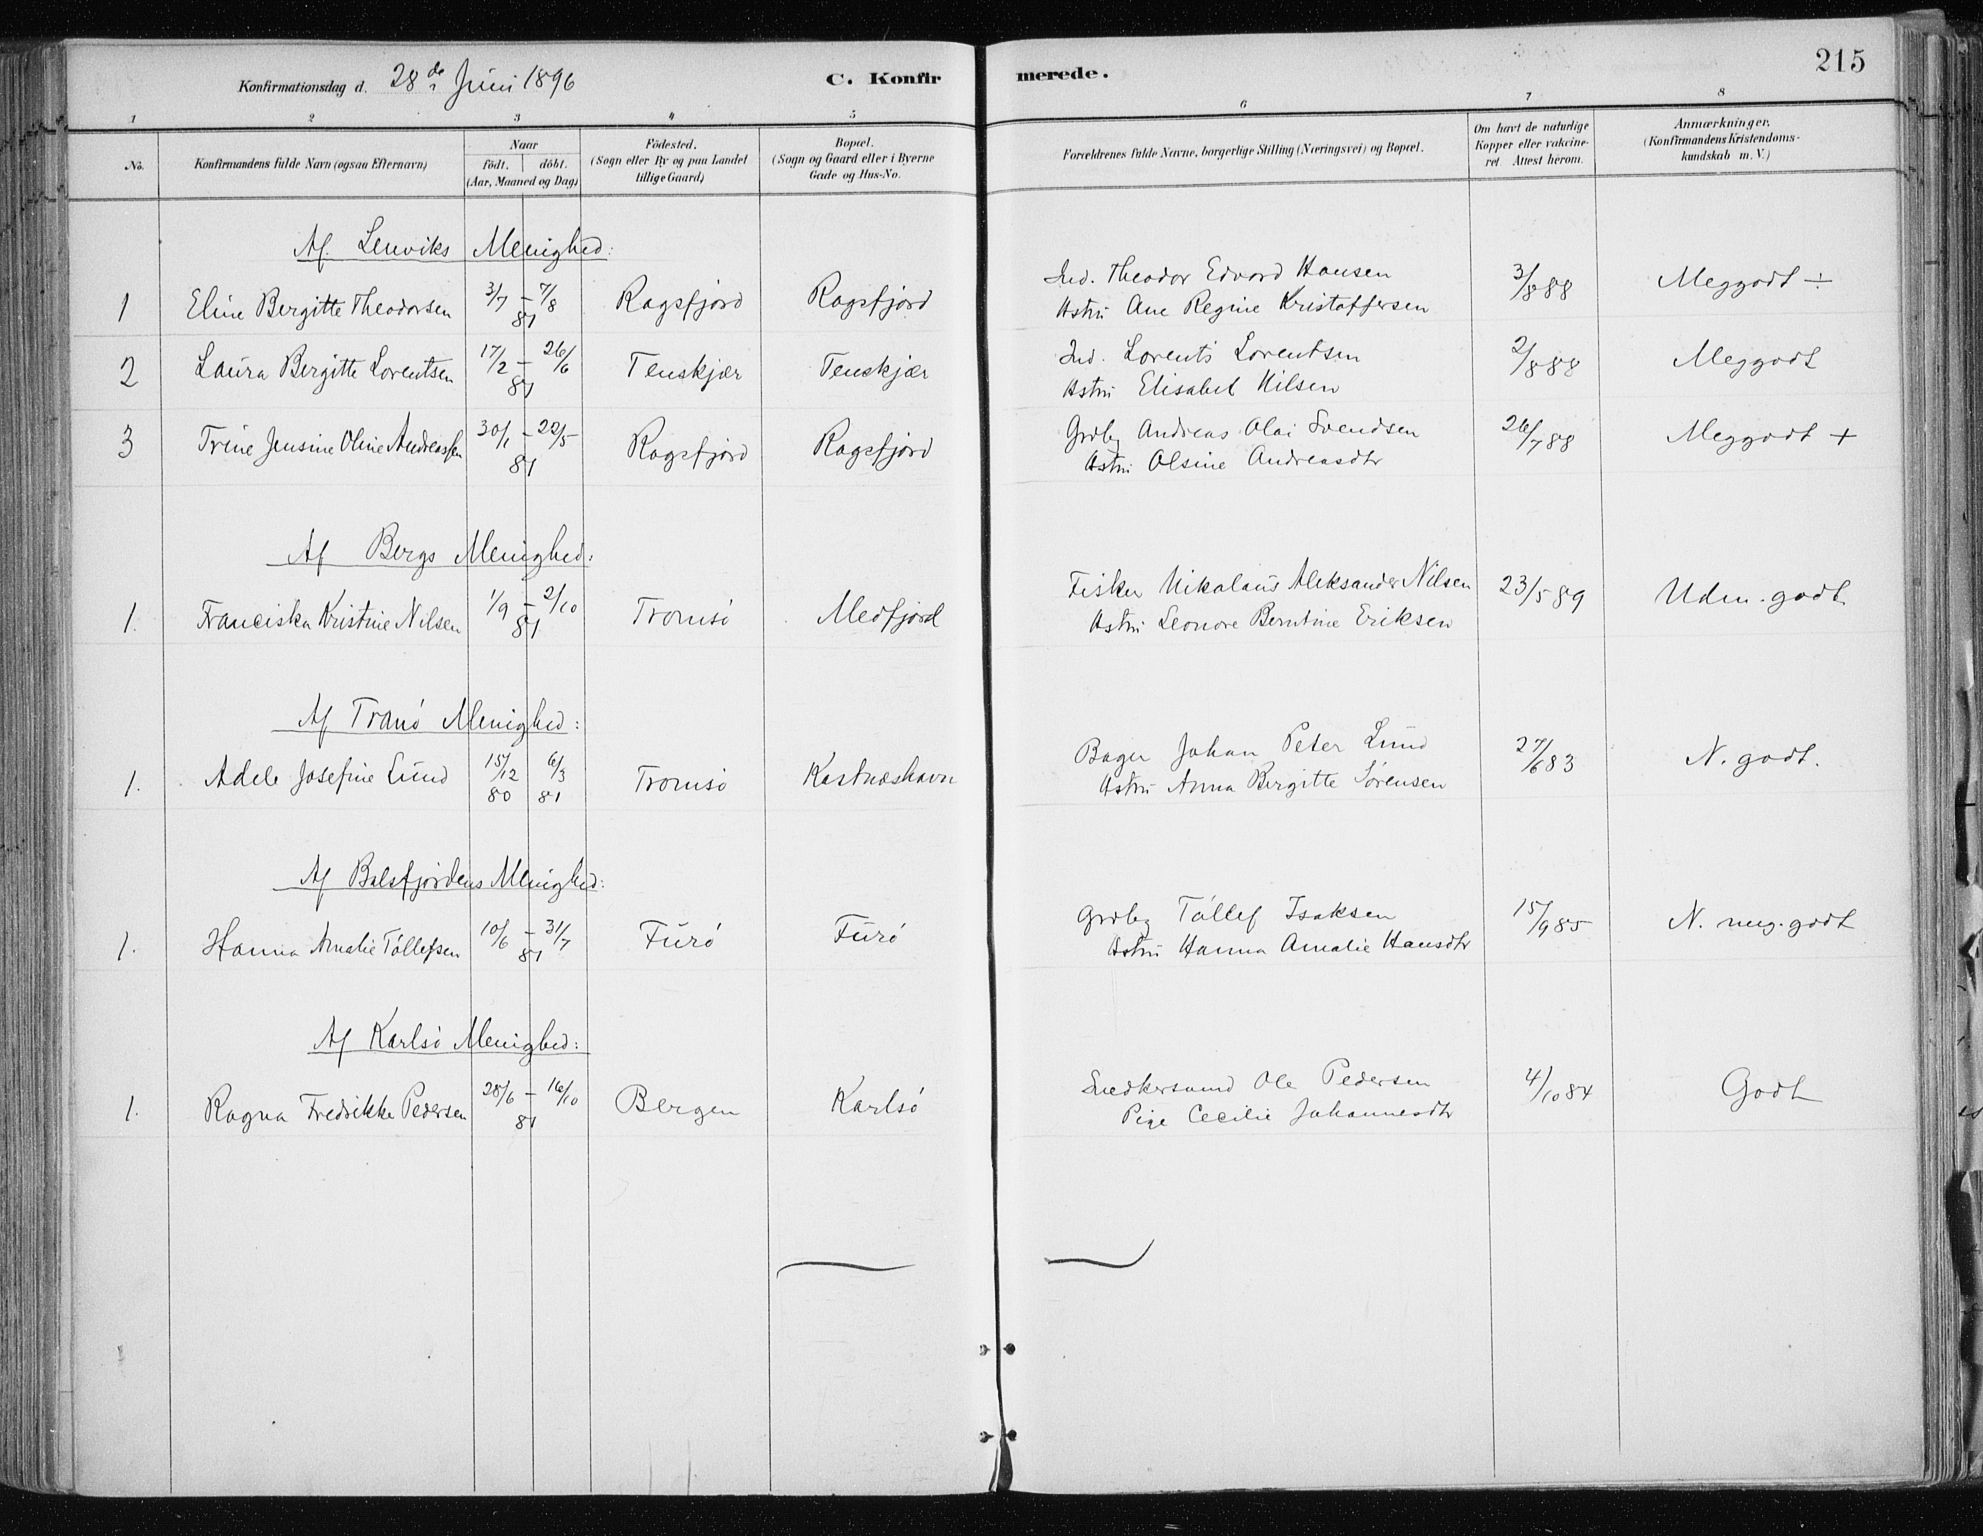 215
Konfirmationsdag d. 28de Juni 1896 C. Konfirmerede.
1 2 3 4 5 6 7 8
No. Konfirmandens fulde Navn (ogsaa Efternavn) Naar født. døbt. (Aar, Maaned og Dag) Fødested. (Sogn eller By og paa Landet tillige Gaard) Bopæl. (Sogn og Gaard eller i Byerne Gade og Hus-No. Forældrenes fulde Navne, borgerlige Stilling (Næringsvei) og Bopæl. Om havt de naturlige Kopper eller vakcineret Attest herom. Anmærkninger. (Konfirmandens Kristendomskundskab m. V.)
Af Lenviks Menighed:
1 Eline Bergitte Theodorsen 3/7 – 7/8 81 Rogsfjord Rogsfjord Ind. Theodor Edvard Hansen 3/8 88 Meggodt ÷
Hstru Ane Regine Kristoffersen
2 Laura Bergitte Lorentsen 17/2 – 26/6 81 Tenskjær Tenskjær Ind. Lorents Lorentsen 2/8 88 Meggodt
Hstru Elisabet Nilsen
3 Trine Jensine Oline Andreassen 30/1 – 22/5 81 Rogsfjord Rogsfjord Grdbg Andreas Olai Svendsen 26/7 88 Meggodt +
Hstru Olsine Andreasdtr
Af Bergs Menighed:
1. Franciska Kristine Nilsen 1/9 – 2/10 81 Tromsø Medfjord Fisker Nikolaus Aleksander Nilsen 23/5 89 Udm. godt
Hstru Leonore Berntine Eriksen
Af Tranø Menighed:
1. Adele Josefine Lund 15/12 80 6/3 81 Tromsø Kastnæshavn Bager Johan Peter Lund 27/6 83 N. godt.
Hstru Anna Birgitte Sørensen
Af Balsfjordens Menighed:
1. Hanna Amalie Tøllefsen 10/6 – 31/7 81 Furø Furø Grdbg Tøllef Isaksen 15/9 85 N. meg. godt
Hstru Hanna Amalie Hansdtr
Af Karlsø Menighed:
1. Ragna Fredrikke Pedersen 28/6 – 16/10 81 Bergen Karlsø Snedkersvend Ole Pedersen 4/10 84 Godt
Pige Cecilie Johannesdtr